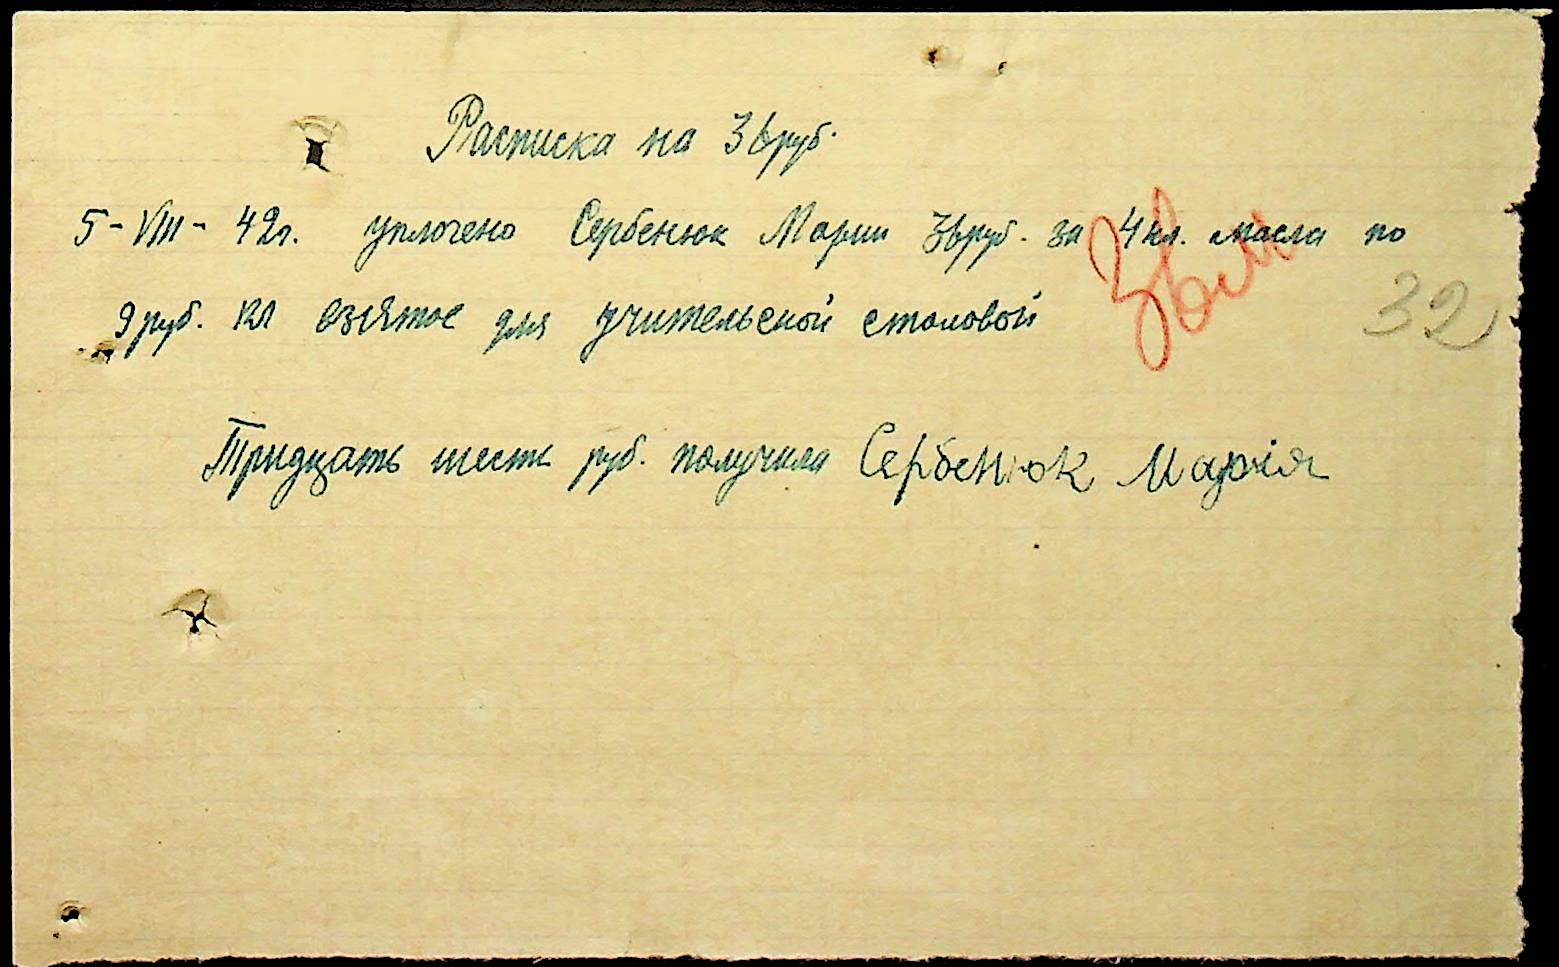 Расписка на 36 руб.
5-VIII-42г. уплочено Сербенюк Марии 36 руб. за 4 кл. масла по
9 руб. кл взятое для учительской столовой
32
Тридцать шесть руб. получила Сербенюк Марія